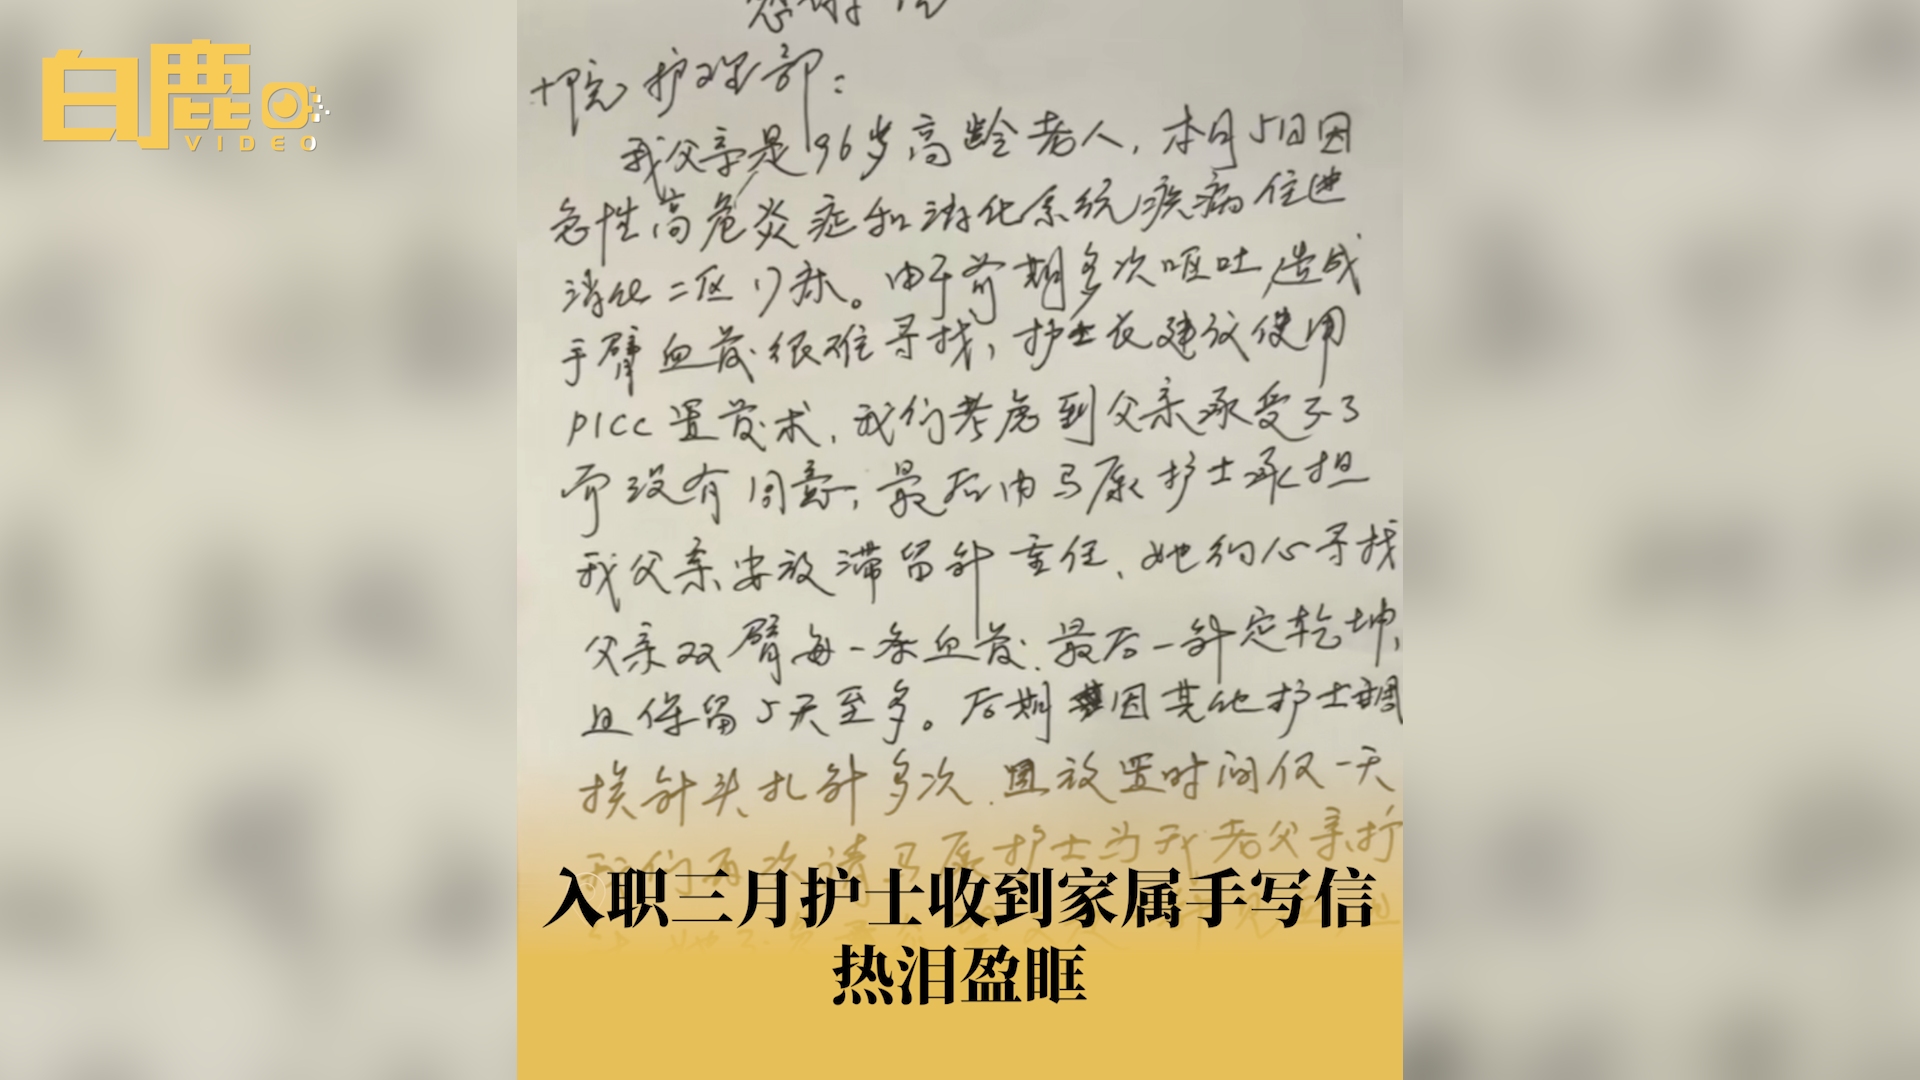 白鹿
VIDEO
感谢信
十院护理部：
我父亲是96岁高龄老人，本月5日因
急性高危炎症和消化系统疾病住进
消化二区17床。由于前期多次呕吐，造成
手臂血管很难寻找，护士长建议使用
PICC置管术，我们考虑到父亲承受不了
而没有同意，最后由马康护士承担
我父亲安放滞留针重任，她细心寻找
父亲双臂每一条血管，最后一针定乾坤，
且保留5天至多。后期因其他护士调
换针头扎针多次，且放置时间仅一天
我们再次请马康护士为我老父亲打
入职三月护士收到家属手写信
热泪盈眶